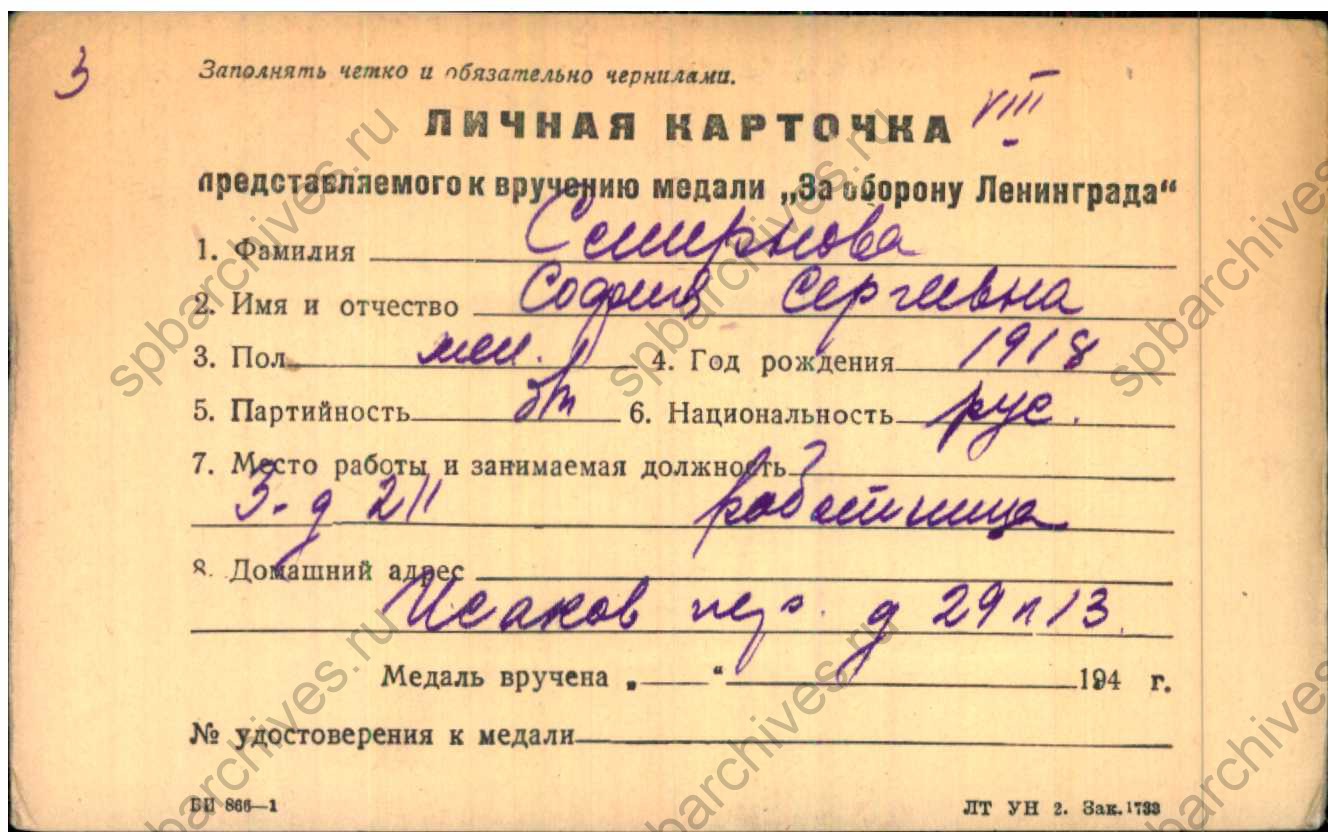 3
Заполнять четко и обязательно чернилами.
ЛИЧНАЯ КАРТОЧКА VIII
представляемого к вручению медали „За оборону Ленинграда“
1. Фамилия Смирнова
2. Имя и отчество София Сергеевна
3. Пол жен. 4. Год рождения 1918
5. Партийность бп 6. Национальность рус.
7. Место работы и занимаемая должность
З-д 211 работница
8. Домашний адрес
Исаков пер. д 29 к 13
Медаль вручена „ “ 194 г.
№ удостоверения к медали
БИ 866—1 ЛТ УН 2. Зак. 1733
spbarchives.ru